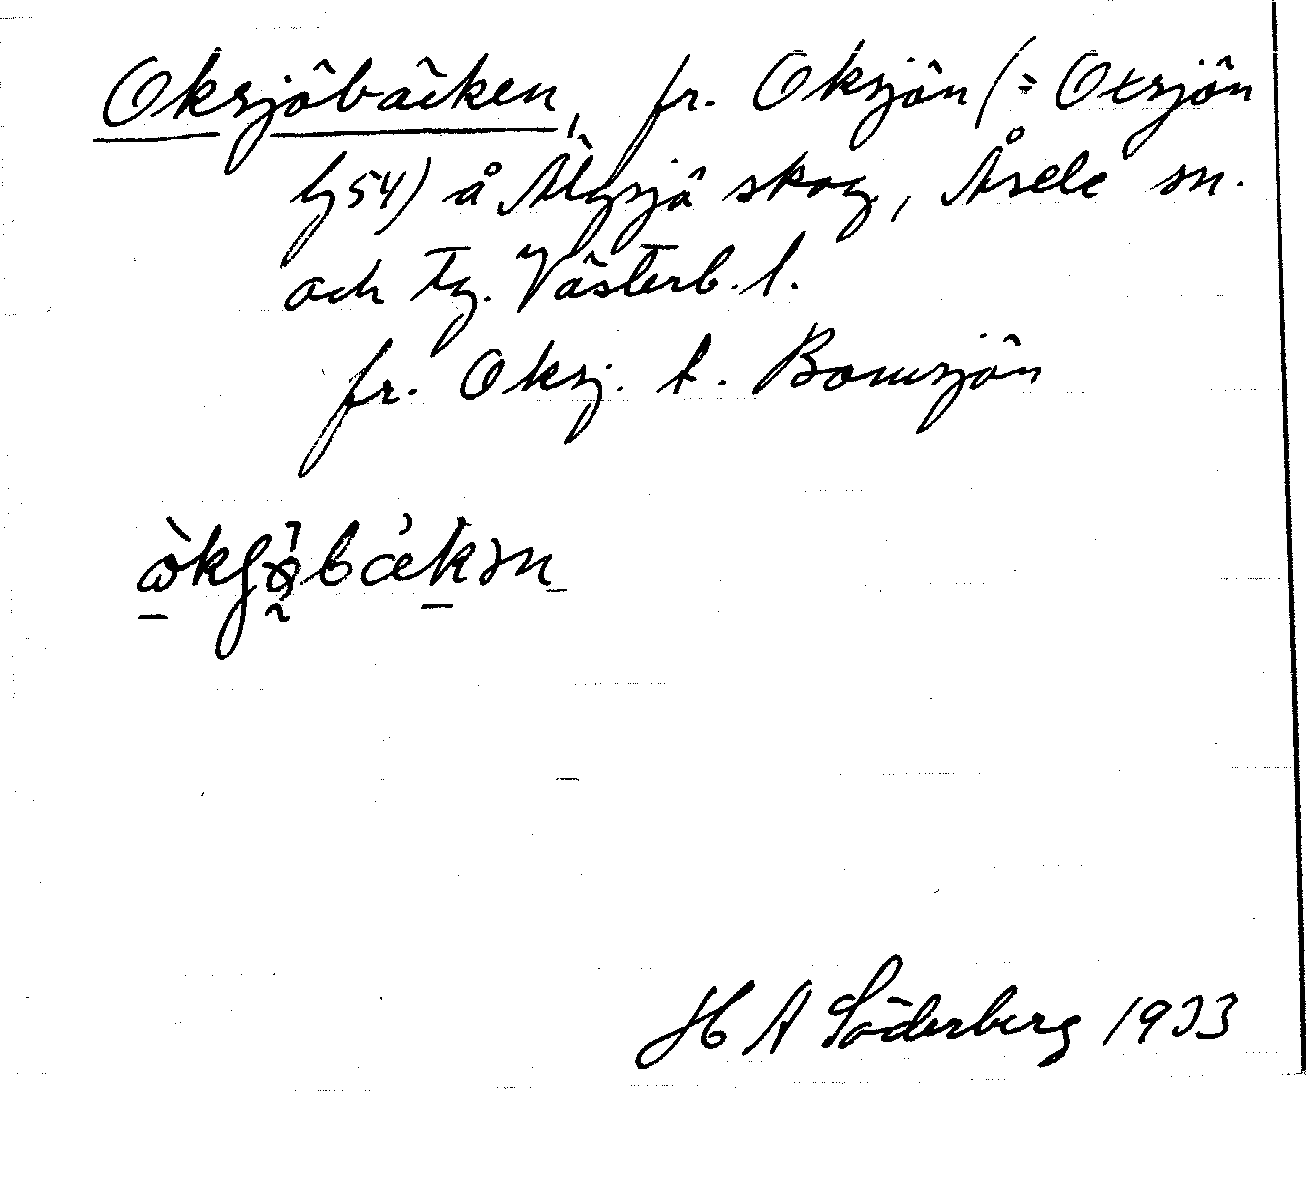 Oksjöbäcken, fr. Oksjön (= Otsjön
lj 54) å Älgsjö skog, Åsele sn.
och tg. Västerb. l.
fr. Oksj. t. Bomsjön
H A Söderberg 1933